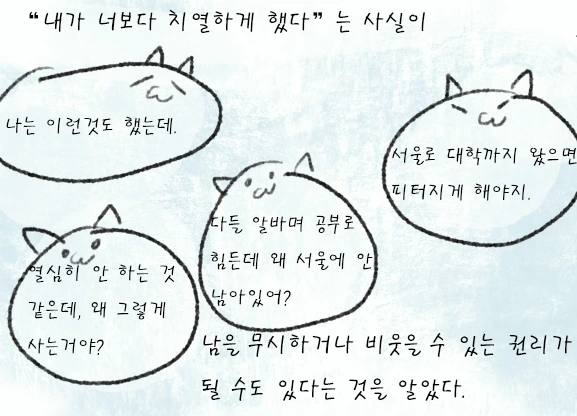 “내가 너보다 치열하게 했다” 는 사실이
나는 이런것도 했는데.
서울로 대학까지 왔으면
피터지게 해야지.
다들 알바며 공부로
힘든데 왜 서울에 안
남아있어?
열심히 안 하는 것
같은데, 왜 그렇게
사는거야?
남을 무시하거나 비웃을 수 있는 권리가
될 수도 있다는 것을 알았다.